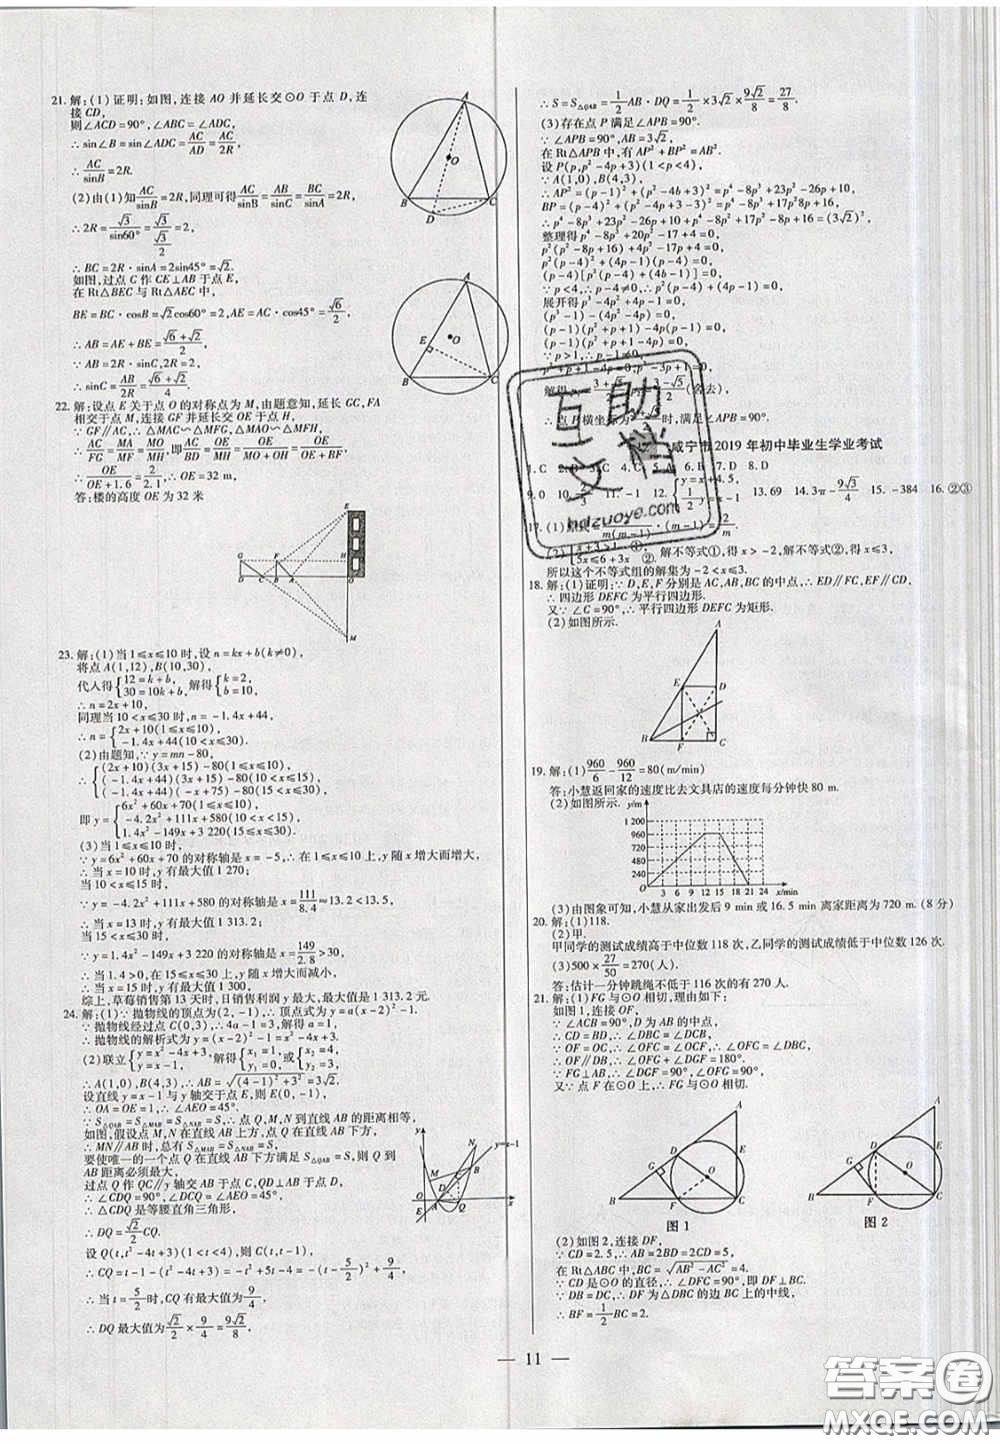 21.解:(1)证明:如图,连接 AO 并延长交⊙O 于点 D,连
接 CD,
则∠ACD=90°,∠ABC=∠ADC,
∴sin∠B=sin∠ADC=AC/AD=AC/2R,
∴AC/sinB=2R.
(2)由(1)知AC/sinB=2R,同理可得AC/sinB=AB/sinC=BC/sinA=2R,
∴2R=√3/sin60°=√3/(√3/2)=2,
∴BC=2R·sinA=2sin45°=√2.
如图,过点 C 作 CE⊥AB 于点 E,
在 Rt△BEC 与 Rt△AEC 中,
BE=BC·cosB=√2cos60°=√2/2,AE=AC·cos45°=√6/2,
∴AB=AE+BE=(√6+√2)/2,
∵AB=2R·sinC,
∴sinC=AB/2R=(√6+√2)/4.
22.解:设点 E 关于点 O 的对称点为 M,由题意知,延长 GC,FA
相交于点 M,连接 GF 并延长交 OE 于点 H,
∵GF∥AC,∴△MAC∽△MFG,△MAO∽△MFH,
∴AC/FG=MA/MF=MO/MH,∴AC/FG=OE/MH=OE/(MO+OH)=OE/(OE+BF),即AC/FG=
OE/(OE+1.6)=2/2.1,∴OE=32 m.
答:楼的高度 OE 为 32 米
23.解:(1)当 1≤x≤10 时,设 n=kx+b(k≠0),
将点 A(1,12),B(10,30),
代入得{12=k+b, 30=10k+b,解得{k=2, b=10,
∴n=2x+10,
同理当 10<x≤30 时,n=-1.4x+44,
∴n={2x+10(1≤x≤10), -1.4x+44(10<x≤30).
(2)由题知,∵y=mn-80,
∴{(2x+10)(3x+15)-80(1≤x≤10) (-1.4x+44)(3x+15)-80(10<x<15) (-1.4x+44)(-x+75)-80(15≤x≤30)
即 y={6x²+60x+70(1≤x≤10) -4.2x²+111x+580(10<x<15) 1.4x²-149x+3 220(15≤x≤30)
(3)当 1≤x≤10 时,
∵y=6x²+60x+70 的对称轴是 x=-5,∴在 1≤x≤10 上,y 随 x 增大而增大,
∴当 x=10 时,y 有最大值 1 270;
当 10<x<15 时,
∵y=-4.2x²+111x+580 的对称轴是 x=111/8.4≈13.2<13.5,
∴当 x=13 时,y 有最大值 1 313.2;
当 15<x<30 时,
∵y=1.4x²-149x+3 220 的对称轴是 x=149/2.8>30,
∴在 15≤x≤30 时,y 随 x 的增大而减小,
∴当 x=15 时,y 有最大值 1 300,
综上,草莓销售第 13 天时,日销售利润 y 最大,最大值是 1 313.2 元.
24.解:(1)∵抛物线的顶点为(2,-1),∴顶点式为 y=a(x-2)²-1.
∵抛物线经过点 C(0,3),∴4a-1=3,解得 a=1,
∴抛物线的解析式为 y=(x-2)²-1=x²-4x+3.
(2)联立{y=x²-4x+3, y=x-1,解得{x₁=1, y₁=0,或{x₂=4, y₂=3.
∴A(1,0),B(4,3),∴AB=√((4-1)²+3²)=3√2.
设直线 y=x-1 与 y 轴交于点 E,则 E(0,-1),
∴OA=OE=1,∴∠AEO=45°.
∵S△QAB=S△MAB=S△NAB=S,∴点 Q,M,N 到直线 AB 的距离相等,
如图,假设点 M,N 在直线 AB 上方,点 Q 在直线 AB 下方,
∴MN∥AB 时,总有 S△MAB=S△NAB=S,
要使唯一的一个点 Q 在直线 AB 下方满足 S△QAB=S,则 Q 到
AB 距离必须最大,
过点 Q 作 QC∥y 轴交 AB 于点 C,QD⊥AB 于点 D,
∴∠CDQ=90°,∠DCQ=∠AEO=45°,
∴△CDQ 是等腰直角三角形,
∴DQ=√2/2CQ.
设 Q(t,t²-4t+3)(1<t<4),则 C(t,t-1),
∴CQ=t-1-(t²-4t+3)=-t²+5t-4=-(t-5/2)²+9/4,
∴当 t=5/2时,CQ 有最大值为9/4,
∴DQ 最大值为√2/2×9/4=9√2/8,
∴S=S△QAB=1/2AB·DQ=1/2×3√2×9√2/8=27/8.
(3)存在点 P 满足∠APB=90°.
∵∠APB=90°,AB=3√2,
在 Rt△APB 中,有 AP²+BP²=AB².
设 P(p,p²-4p+3)(1<p<4),
∵A(1,0),B(4,3),
∴AP²=(p-1)²+(p²-4p+3)²=p⁴-8p³+23p²-26p+10,
BP=(p-4)²+(p²-4p)²=p⁴-8p³+17p²-8p+16,
∴p⁴-8p³+23p²-26p+10+p⁴-8p³+17p²-8p+16=(3√2)²,
整理得 p⁴-8p³+20p²-17p+4=0,
p²(p²-8p+16)+4p²-17p+4=0,
p²(p-4)²+(4p-1)(p-4)=0,
(p-4)[p²(p-4)+(4p-1)]=0,
∵p<4,∴p-4≠0,∴p³-4p²+4p-1=0,
展开得 p³-4p²+4p-1=0,
(p³-1)-(4p²-4p)=0,
(p-1)(p²+p+1)-4p(p-1)=0,
(p-1)(p²+p+1-4p)=0,
∵p>1,∴p-1≠0,
∴p²+p+1-4p=0,p²-3p+1=0,
(舍去),
时,满足∠APB=90°.
咸宁市 2019 年初中毕业生学业考试
1.C 4.C 6.B 7.D 8.D
9.0 11.-1 13.69 14.3π-9√3/4 15.-384 16.②③
解不等式①,得 x>-2,解不等式②,得 x≤3.
所以这个不等式组的解集为-2<x≤3.
18.解:(1)证明:∵D,E,F 分别是 AC,AB,BC 的中点,∴ED∥FC,EF∥CD,
∴四边形 DEFC 为平行四边形.
又∵∠C=90°,∴平行四边形 DEFC 为矩形.
(2)如图所示.
19.解:(1)960/6-960/12=80(m/min)
答:小慧返回家的速度比去文具店的速度每分钟快 80 m.
(2)如图所示.
(3)由图象可知,小慧从家出发后 9 min 或 16.5 min 离家距离为 720 m.(8 分)
20.解:(1)118.
(2)甲.
甲同学的测试成绩高于中位数 118 次,乙同学的测试成绩低于中位数 126 次.
(3)500×27/50=270(人).
答:估计一分钟跳绳不低于 116 次的有 270 人.
21.解:(1)FG 与⊙O 相切,理由如下:
如图 1,连接 OF,
∵∠ACB=90°,D 为 AB 的中点,
∴CD=BD,∴∠DBC=∠DCB,
∵OF=OC,∴∠OFC=∠OCF,∴∠OFC=∠DBC,
∴OF∥DB,∴∠OFG+∠DGF=180°.
∵FG⊥AB,∴∠DGF=90°,∴∠OFG=90°,
又∵点 F 在⊙O 上,∴FG 与⊙O 相切.
图 1 图 2
(2)如图 2,连接 DF,
∵CD=2.5,∴AB=2CD=5,
在 Rt△ABC 中,BC=√(AB²-AC²)=4.
∵CD 是⊙O 的直径,∴∠DFC=90°,即 DF⊥BC.
∵DB=DC,∴DF 为△DBC 的边 BC 上的中线,
∴BF=1/2BC=2.
11
互助文档
hdzuoye.com
答案圈
MXQE.COM